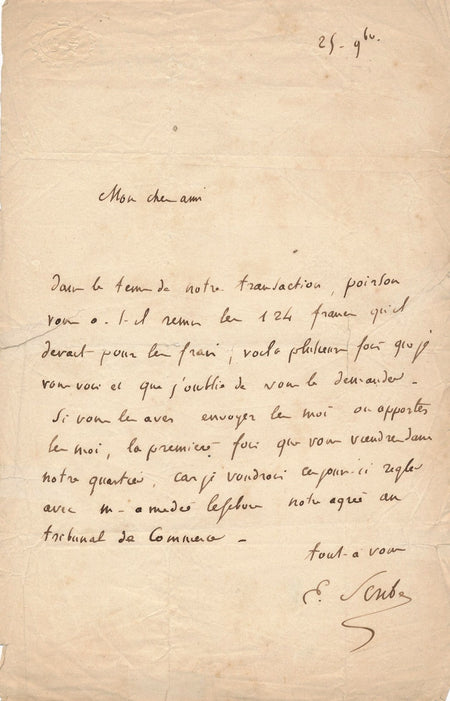 25 - 9bre.
Mon cher ami
dans le tems de notre transaction, poirson
vous a-t-il remis les 124 francs qu'il
devait pour les frais ; voila plusieurs fois que je
vous vois et que j'oublie de vous le demander -
Si vous les aves envoyer les moi ou apportes
les moi, la premiere fois que vous viendres dans
notre quartier, car je voudrois ces jours-ci regler
avec m - amedée lefebvre notre agréé au
tribunal de Commerce -
tout-a vous
E. Scribe